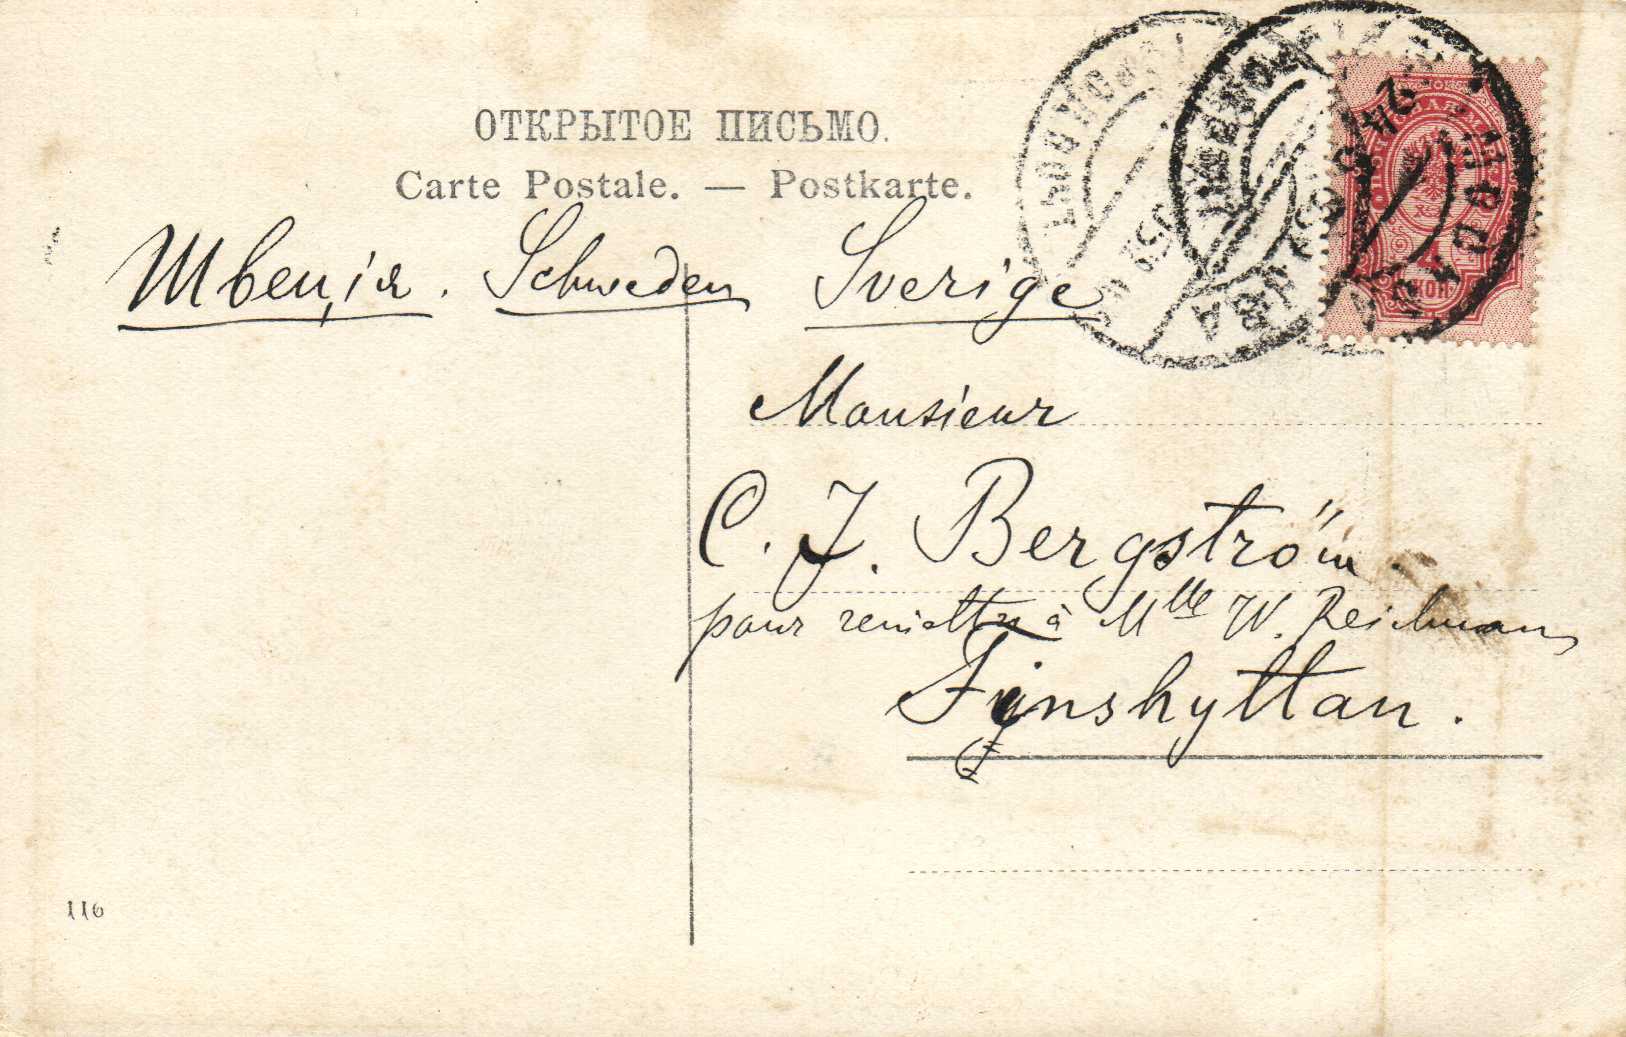 ОТКРЫТОЕ ПИСЬМО.
Carte Postale. — Postkarte.
Швеція. Schweden Sverige
Monsieur
C. J. Bergström
pour remettre à Mlle W. Reichmann
Finshyttan.
116